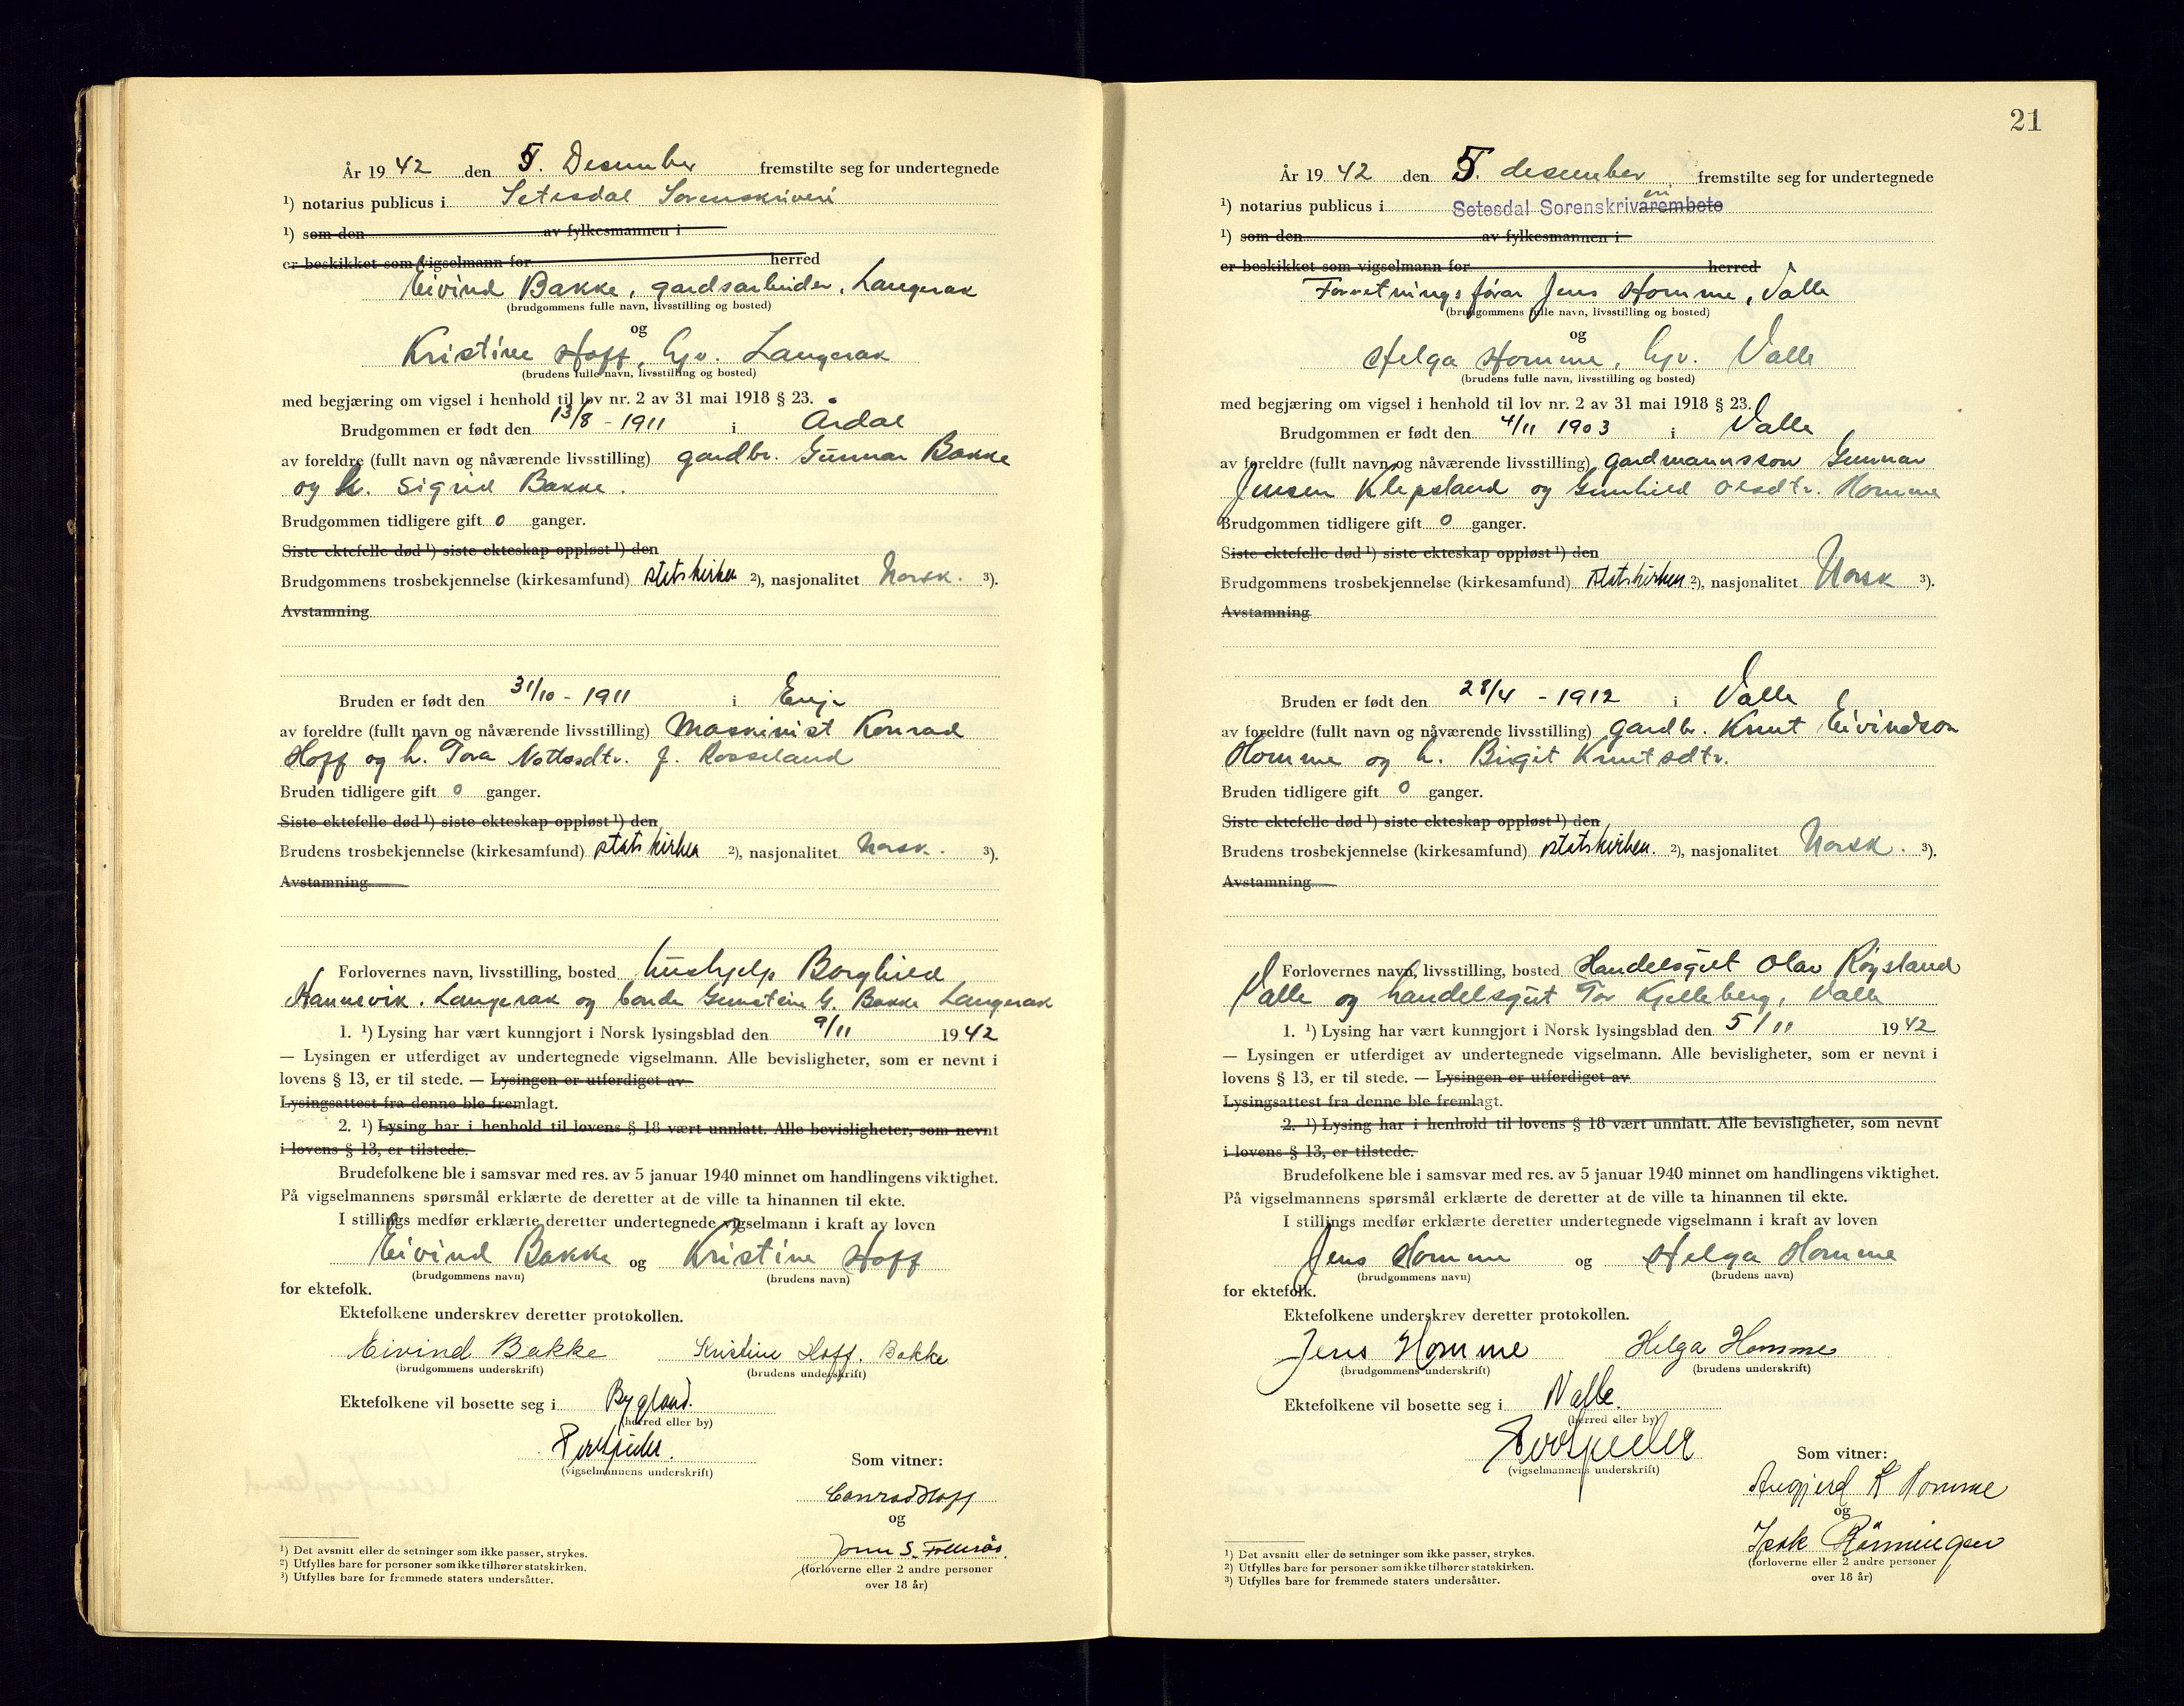 År 19 42 den 5. Desember fremstilte seg for undertegnede
¹) notarius publicus i Setesdal Sorenskriveri
¹) som den av fylkesmannen i
er beskikket som vigselmann for herred
Eivind Bakke, gardsarbeider, Langerak
(brudgommens fulle navn, livsstilling og bosted)
og
Kristine Hoff, hjv. Langerak
(brudens fulle navn, livsstilling og bosted)
med begjæring om vigsel i henhold til lov nr. 2 av 31 mai 1918 § 23.
Brudgommen er født den 13/8 - 1911 i Årdal
av foreldre (fullt navn og nåværende livsstilling) gardbr. Gunnar Bakke
og h. Sigrid Bakke.
Brudgommen tidligere gift 0 ganger.
Siste ektefelle død ¹) siste ekteskap oppløst ¹) den
Brudgommens trosbekjennelse (kirkesamfund) statskirken ²), nasjonalitet Norsk. ³).
Avstamning
Bruden er født den 31/10 - 1911 i Evje
av foreldre (fullt navn og nåværende livsstilling) Maskinist Konrad
Hoff og h. Tora Nottosdtr. f. Rosseland
Bruden tidligere gift 0 ganger.
Siste ektefelle død ¹) siste ekteskap oppløst ¹) den
Brudens trosbekjennelse (kirkesamfund) statskirken ²), nasjonalitet Norsk. ³).
Avstamning
Forlovernes navn, livsstilling, bosted hushjelp Borghild
Hannevik. Langerak og bonde Gunstein G. Bakke Langerak
1. ¹) Lysing har vært kunngjort i Norsk lysingsblad den 9/11 1942
— Lysingen er utferdiget av undertegnede vigselmann. Alle bevisligheter, som er nevnt i
lovens § 13, er til stede. — Lysingen er utferdiget av
Lysingsattest fra denne ble fremlagt.
2. ¹) Lysing har i henhold til lovens § 18 vært unnlatt. Alle bevisligheter, som nevnt
i lovens § 13, er tilstede.
Brudefolkene ble i samsvar med res. av 5 januar 1940 minnet om handlingens viktighet.
På vigselmannens spørsmål erklærte de deretter at de ville ta hinannen til ekte.
I stillings medfør erklærte deretter undertegnede vigselmann i kraft av loven
Eivind Bakke og Kristine Hoff
(brudgommens navn) (brudens navn)
for ektefolk.
Ektefolkene underskrev deretter protokollen.
Eivind Bakke Kristine Hoff. Bakke
(brudgommens underskrift) (brudens underskrift)
Ektefolkene vil bosette seg i Bygland.
(herred eller by)
(vigselmannens underskrift)
Som vitner:
Conrad Hoff
og
S.
(forloverne eller 2 andre personer
over 18 år)
¹) Det avsnitt eller de setninger som ikke passer, strykes.
²) Utfylles bare for personer som ikke tilhører statskirken.
³) Utfylles bare for fremmede staters undersåtter.
21
År 19 42 den 5. desember fremstilte seg for undertegnede
¹) notarius publicus i Setesdal Sorenskrivarembete eri
¹) som den av fylkesmannen i
er beskikket som vigselmann for herred
Forretningsførar Jens Homme, Valle
(brudgommens fulle navn, livsstilling og bosted)
og
Helga Homme, hjv. Valle
(brudens fulle navn, livsstilling og bosted)
med begjæring om vigsel i henhold til lov nr. 2 av 31 mai 1918 § 23.
Brudgommen er født den 4/11 1903 i Valle
av foreldre (fullt navn og nåværende livsstilling) gardmannsson Gunnar
Jensen Klepsland og Gunhild Olsdtr. Homme
Brudgommen tidligere gift 0 ganger.
Siste ektefelle død ¹) siste ekteskap oppløst ¹) den
Brudgommens trosbekjennelse (kirkesamfund) statskirken ²), nasjonalitet Norsk ³).
Avstamning
Bruden er født den 28/4 - 1912 i Valle
av foreldre (fullt navn og nåværende livsstilling) gardbr. Knut Eivindson
Homme og h. Birgit Knutsdtr.
Bruden tidligere gift 0 ganger.
Siste ektefelle død ¹) siste ekteskap oppløst ¹) den
Brudens trosbekjennelse (kirkesamfund) statskirken. ²), nasjonalitet Norsk. ³).
Avstamning
Forlovernes navn, livsstilling, bosted Handelsgut Olav Røysland
Valle og handelsgut Tor Kjelleberg, Valle
1. ¹) Lysing har vært kunngjort i Norsk lysingsblad den 5/11 1942
— Lysingen er utferdiget av undertegnede vigselmann. Alle bevisligheter, som er nevnt i
lovens § 13, er til stede. — Lysingen er utferdiget av
Lysingsattest fra denne ble fremlagt.
2. ¹) Lysing har i henhold til lovens § 18 vært unnlatt. Alle bevisligheter, som nevnt
i lovens § 13, er tilstede.
Brudefolkene ble i samsvar med res. av 5 januar 1940 minnet om handlingens viktighet.
På vigselmannens spørsmål erklærte de deretter at de ville ta hinannen til ekte.
I stillings medfør erklærte deretter undertegnede vigselmann i kraft av loven
Jens Homme og Helga Homme
(brudgommens navn) (brudens navn)
for ektefolk.
Ektefolkene underskrev deretter protokollen.
Jens Homme Helga Homme
(brudgommens underskrift) (brudens underskrift)
Ektefolkene vil bosette seg i Valle.
(herred eller by)
(vigselmannens underskrift)
Som vitner:
Angjerd K Homme
og
Rönningen
(forloverne eller 2 andre personer
over 18 år)
¹) Det avsnitt eller de setninger som ikke passer, strykes.
²) Utfylles bare for personer som ikke tilhører statskirken.
³) Utfylles bare for fremmede staters undersåtter.